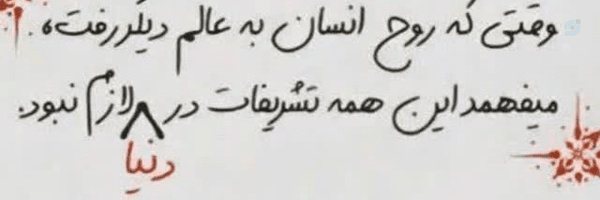 وقتی که روح انسان به عالم دیگر رفت،
میفهمد این همه تشریفات در لازم نبود.
دنیا